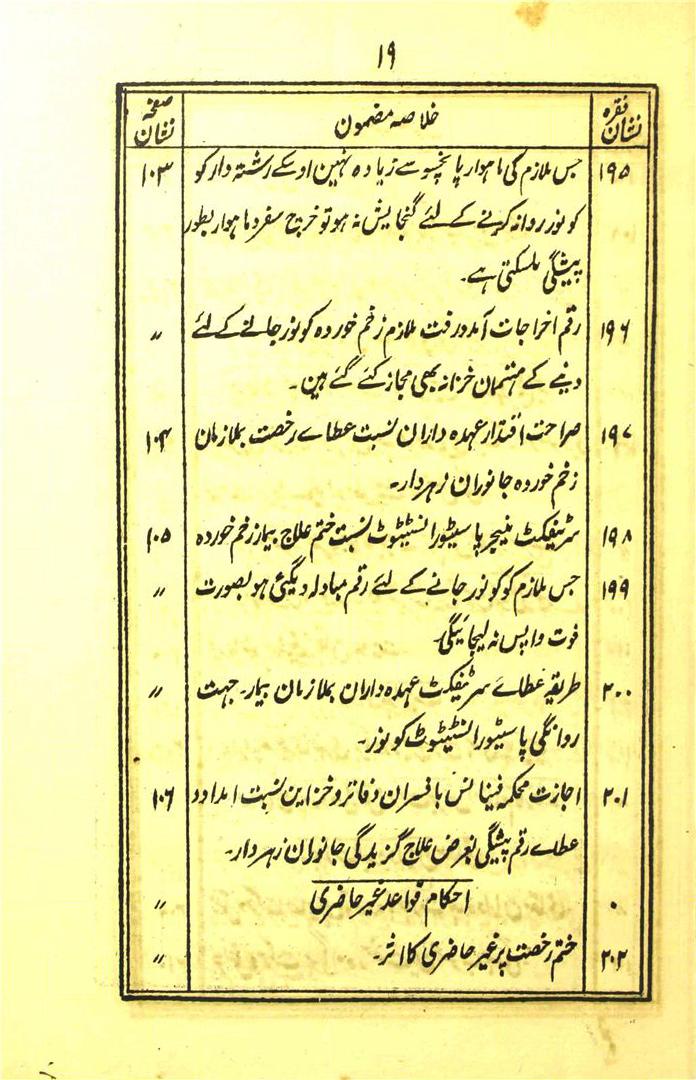 ۱۹
نشان فقرہ خلاصہ مضمون نشان صفحہ
۱۹۵ جس ملازم کی ماہوار پانچسو سے زیادہ نہین اوسکے رشتہ دار کو ۱۰۳
کونور روانہ کرنے کے لئے گنجایش نہ ہو تو خرچ سفر و ماہوار بطور
پیشگی ملسکتی ہے۔
۱۹۶ رقم اخراجات آمد و رفت ملازم زخم خوردہ کونور جانے کے لئے 〃
دینے کے مہتممان خزانہ بھی مجاز کئے گئے ہین۔
۱۹۷ صراحت اقتدار عہدہ داران نسبت عطاے رخصت بملازمان ۱۰۴
زخم خوردہ جانوران زہردار۔
۱۹۸ سرٹیفکٹ منیجر پاسیٹور انسٹیٹوٹ نسبت ختم علاج بیمار زخم خوردہ ۱۰۵
۱۹۹ جس ملازم کو کونور جانے کے لئے رقم مبادلہ دیگئی ہو بصورت 〃
فوت واپس نہ لیجائیگی۔
۲۰۰ طریقہ عطاے سرٹیفکٹ عہدہ داران بملازمان بیمار۔ جہت 〃
روانگی پاسیٹور انسٹیٹوٹ کونور۔
۲۰۱ اجازت محکمہ فینانس بافسران دفاتر و خزاین نسبت امداد و ۱۰۶
عطاے رقم پیشگی بغرض علاج گزیدگی جانوران زہردار۔
۰ احکام قواعد غیر حاضری 〃
۲۰۲ ختم رخصت پر غیر حاضری کا اثر۔ 〃